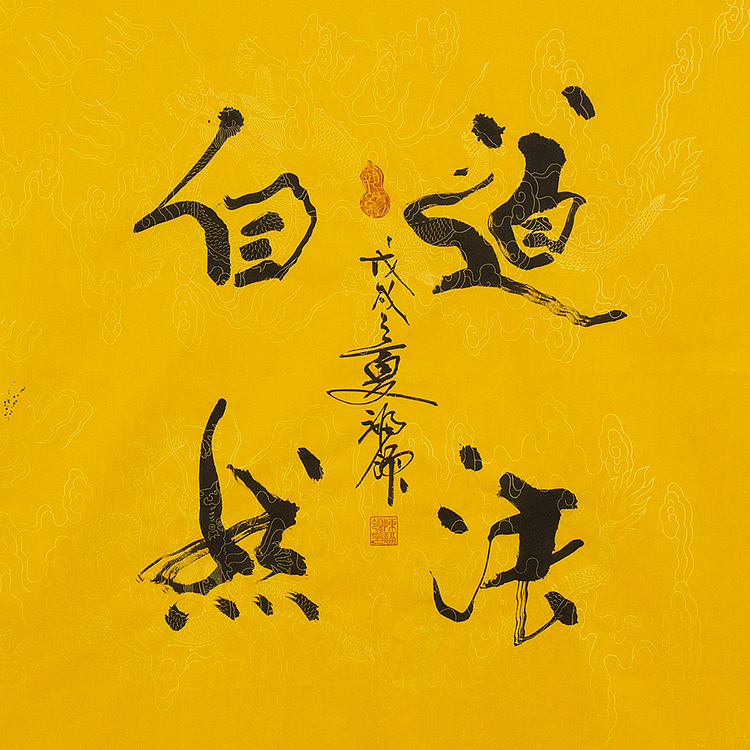 道法
自然
戊戌之夏福师